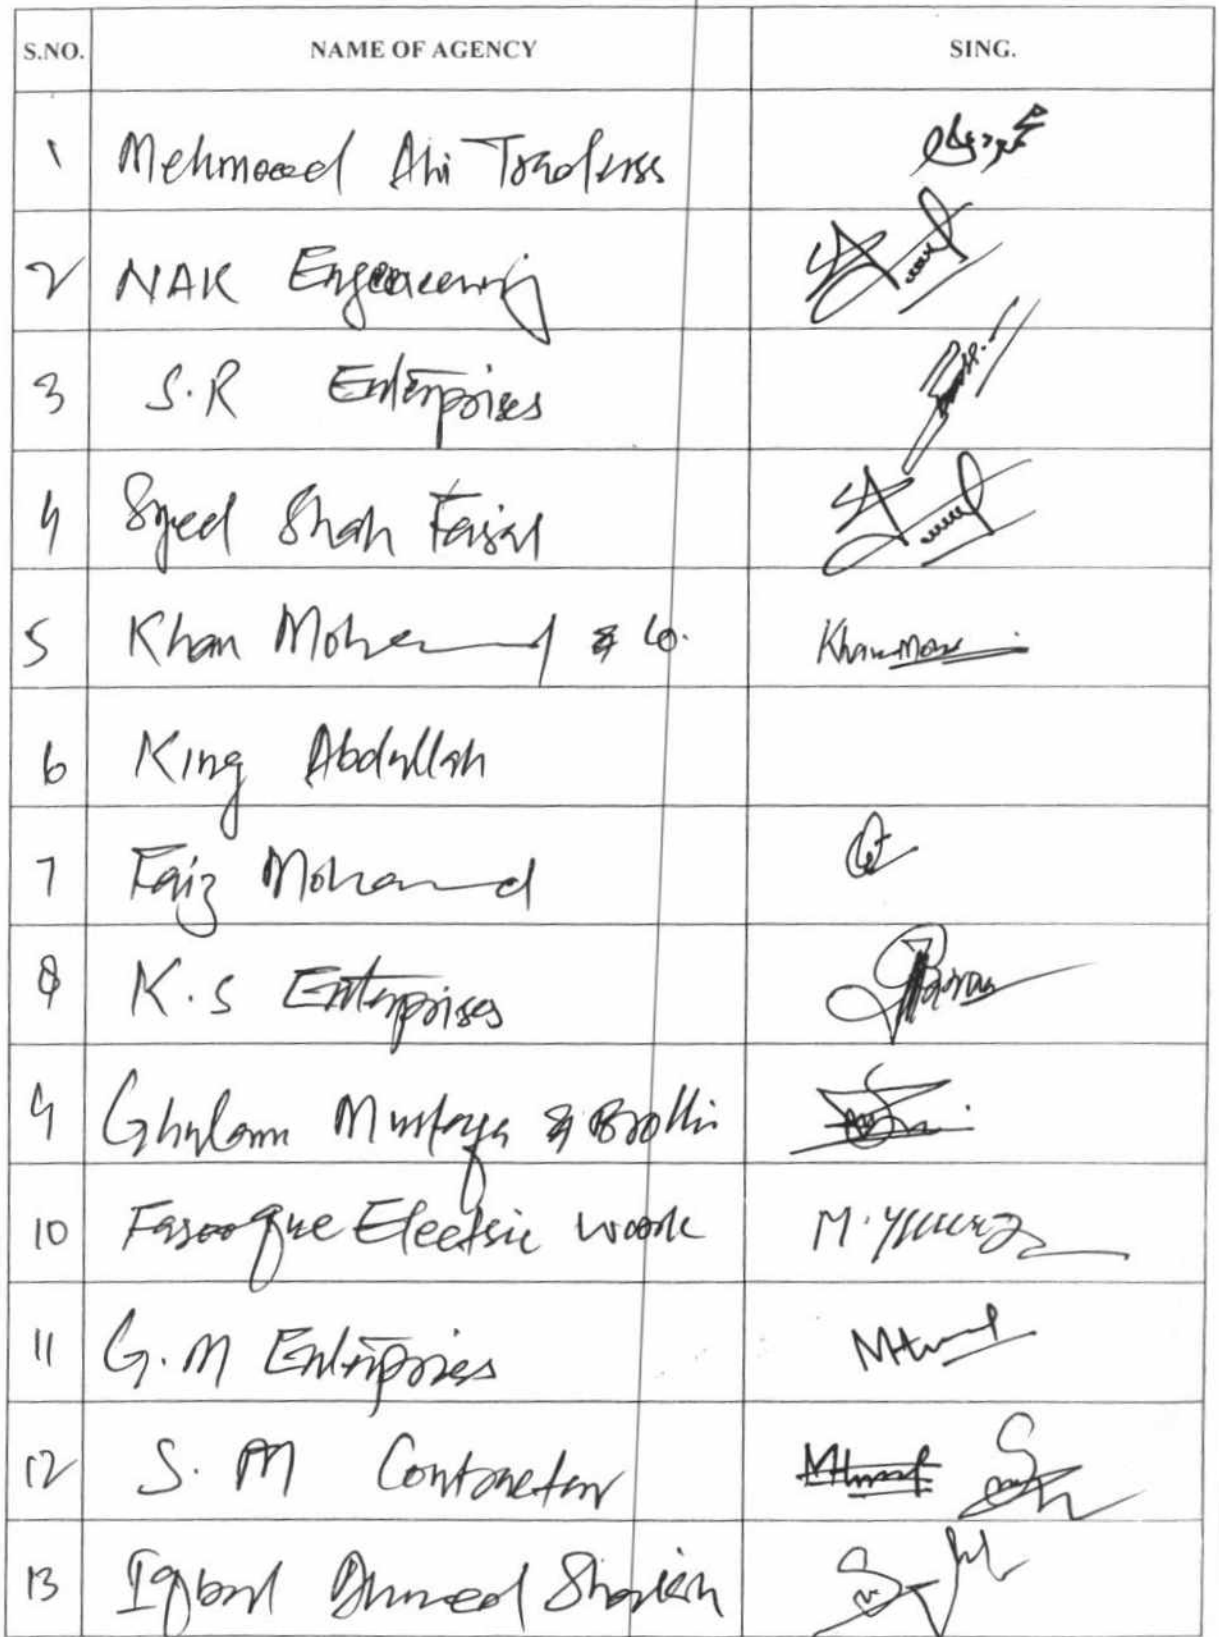 S.NO. NAME OF AGENCY SING.
1 Mehmood Ali Traderss
2 NAK Engeneering
3 S.R Enterprises
4 Syed Shah Faisal
5 Khan Mohammad & Co. Khan Moh
6 King Abdullah
7 Faiz Mohammad
8 K.S Enterprises
9 Ghulam Mustafa & Broth
10 Farooque Electric work M.
11 G.M Enterprises
12 S.M Contractor
13 Iqbal Ahmed Shaikh